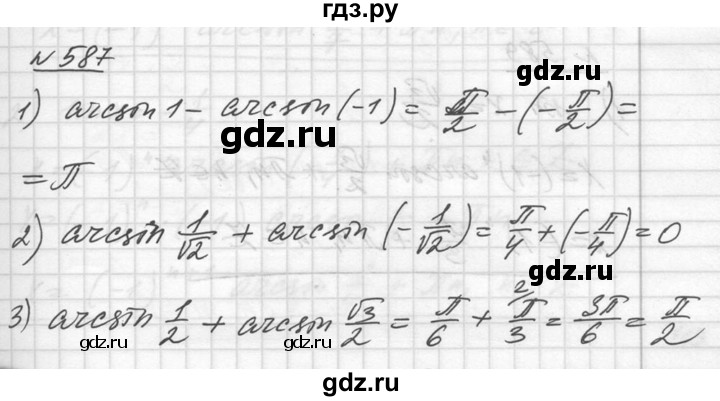 гдз.ру
№ 587
1) arcsin 1 - arcsin (-1) = π/2 - (-π/2) =
= π
gdz.ru
gdz.ru
2) arcsin 1/√2 + arcsin (-1/√2) = π/4 + (-π/4) = 0
gdz.ru
3) arcsin 1/2 + arcsin √3/2 = π/6 + π/3 ² = 3π/6 = π/2
gdz.ru
gdz.ru
gdz.ru